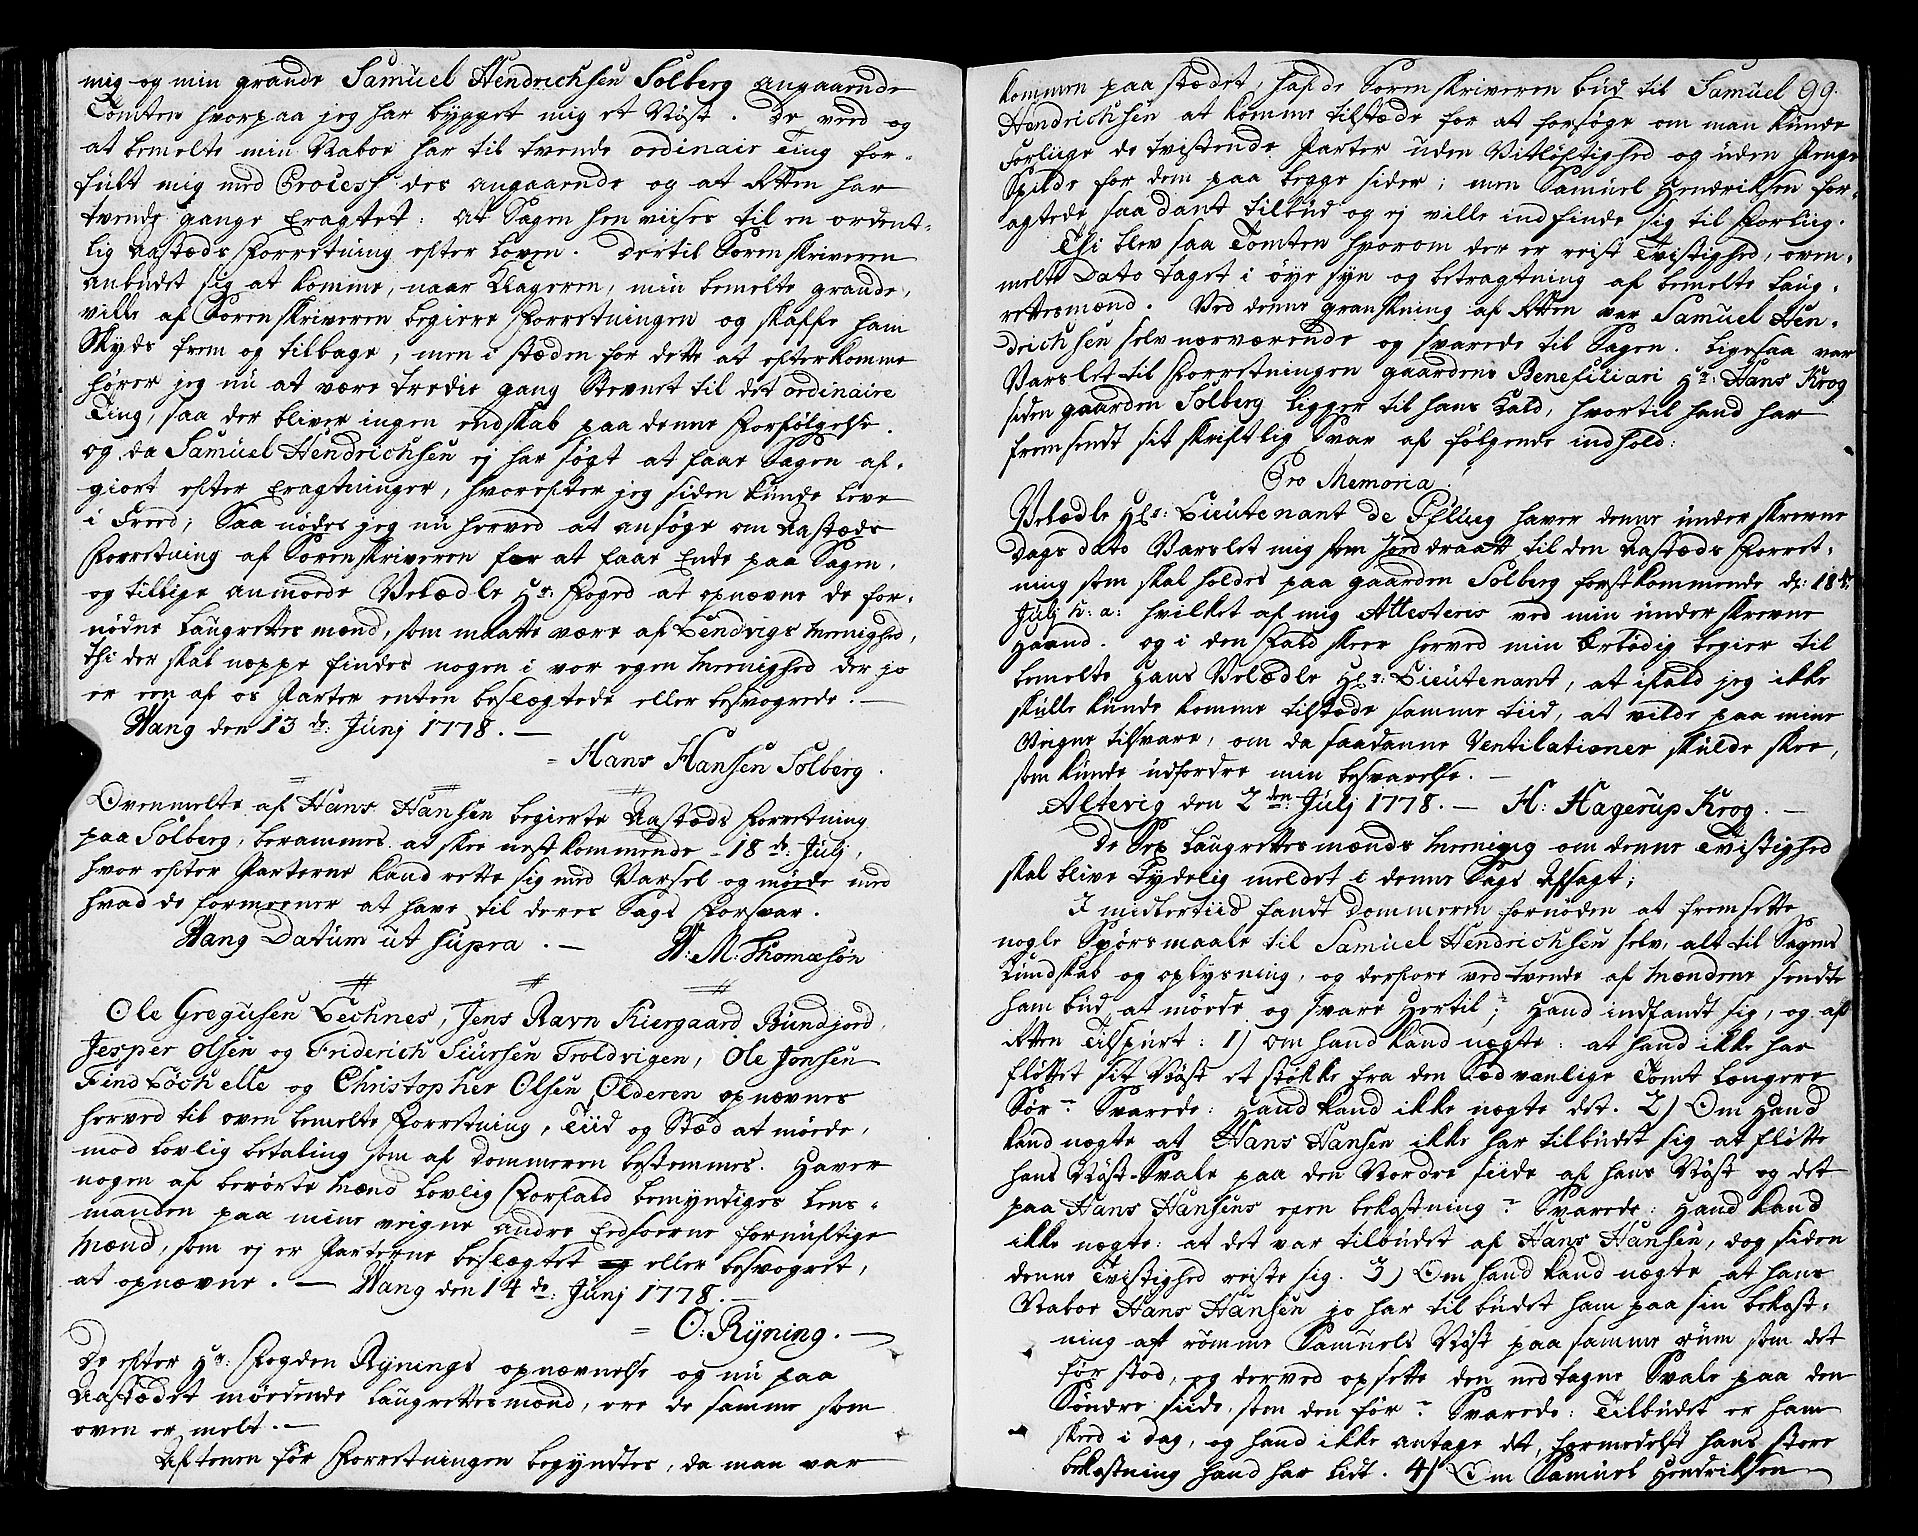 mig og min grande Samuel Hendrichsen Solberg angaaende
Tomten hvorpaa jeg har bygget mig et Nøst. De veed og
at bemelte min Naboe har til tvende ordinair Ting for-
fult mig med Process des angaaende og at Retten har
tvende gange Eragtet: At Sagen henviises til en ordent-
lig Aastæds Forretning efter Loven. Dertil Sorenskriveren
anbudet sig at komme, naar Klageren, min bemelte grande,
ville af Sorenskriveren begiere Forretningen og skaffe ham
Skyds frem og tilbage, men i stæden for dette at efterkomme
hører jeg nu at være tredie gang Stevnet til det ordinaire
Ting, saa der bliver ingen endskab paa denne Forfølgelse.
og da Samuel Hendrichsen ej har søgt at faae Sagen af-
giort efter Eragtninger, hvorefter jeg siden kunde leve
i Freed, Saa nødes jeg nu herved at ansøge om Aastæds
Forretning af Sorenskriveren for at faae Ende paa Sagen,
og tillige anmode Velædle Hr: Foged at opnævne de for-
nødne Laugrettesmænd, som maatte være af Lendvigs Meenighed,
thi der skal neppe findes nogen i vor egen meenighed der jo
er een af os Parter enten beslegtede eller besvogrede. —
Wang den 13de: Junj 1778. —
= Hans Hansen Solberg.
Ovenmelte af Hans Hansen begierte Aastæds Forretning
paa Solberg, berammes at skee nestkommende 18de: Julj,
hvor efter Parterne kand rette sig med Varsel og møde med
hvad de formeener at have til deres Sags Forsvar.
Wang Datum ut supra. — W: M: Thomæsøn
Ole Gregusen Lechnes, Jens Ravn Kiergaard Bundjord,
Jesper Olsen og Friderich Siursen Troldvigen, Ole Jonsen
Find Løchelle og Christopher Olsen Olderen opnævnes
herved til oven bemelte Forretning, Tiid og Stæd at møde,
mod lovlig betaling som af Dommeren bestemmes. Haver
nogen af berørte Mænd lovlig Forfald bemyndiges Lens-
manden paa mine veigne andre Eedsoerne fornuftige
Mænd, som ej er Parterne beslegtet eller besvogret,
at opnævne. — Wang den 14de: Junj 1778. —
= O: Rÿning. —
De efter Hr: Fogden Rÿnings opnævnelse og nu paa
Aastædet mødende Laugrettesmænd, ere de samme som
oven er melt. —
Aftenen før Forretningen begyndtes, da man var
kommen paa stædet, hafde Sorenskriveren bud til Samuel 99.
Hendrichsen at komme tilstæde for at forsøge om man kunde
forliige de tvistende Parter uden Vitløftighed og uden Penge
Spilde for dem paa begge sider; men Samuel Hendriksen for-
agtede saadant tilbud og ej ville indfinde sig til Forliig.
Thi blev saa Tomten hvorom der er reist Tvistighed, oven-
melte Dato taget i øye syn og betragtning af bemelte Laug-
rettesmænd. Ved denne granskning af Retten var Samuel Hen-
drichsen selv nærværende og svarede til Sagen. Ligesaa var
Varslet til Forretningen gaardens Benefiliari Hr: Hans Krog
siden gaarden Solberg ligger til hans Kald, hvortil hand har
fremsendt sit skriftlig Svar af følgende indhold:
Pro Memoria.
Velædle Hr: Lieutenant de Pflueg haver denne underskrevne
Dags dato Varslet mig som Jorddraatt til den Aastæds Forret-
ning som skal holdes paa gaarden Solberg førstkommende d: 18de
Julj h: a: hvilket af mig Attesteres ved min underskrevne
Haand. og i den Fald skeer herved min ærbødig begier til
bemelte Hans Velædle Hr: Lieutenant, at ifald jeg ikke
skulle kunde komme tilstæde samme tiid, at vilde paa mine
Veigne tilsvare, om da saadanne Ventilationer skulde skee,
som kunde udfordre min besvarelse. —
Altevig den 2den: Julj 1778. — H: Hagerup Krog. —
De Sex Laugrettesmænds meening om denne Tvistighed
skal blive tydelig meldet i denne Sags Afsagt;
I midlertiid fandt Dommeren fornøden at fremsette
nogle Spørsmaale til Samuel Hendrichsen selv, alt til Sagens
Kundskab og oplysning, og derfore ved tvende af Mændene sendte
ham bud at møde og svare hertil; Hand indfandt sig, og af
Retten Tilspurt: 1) om hand kand nægte: at hand ikke har
fløttet sit Nøst et støkke fra den Sædvanlige Tomt længere
Sør? Svarede: Hand kand ikke nægte det. 2) Om Hand
kand nægte at Hans Hansen ikke har tilbudet sig at fløtte
hans Nøst-Svale paa den Nordre siide af hans Nøst og det
paa Hans Hansens egen bekostning? Svarede: Hand kand
ikke nægte: at det var tilbudet af Hans Hansen, dog siden
denne Tvistighed reiste sig. 3) Om hand kand nægte at hans
Naboe Hans Hansen jo har tilbudet ham paa sin bekost-
ning att rømme Samuels Nøst paa samme rum som det
før stod, og derved opsette den nedtagne Svale paa den
Søndre siide, som den før? Svarede: Tilbudet er ham
skeed i dag, og hand ikke antage det, formedelst hans store
bekostning hand har lidt. 4) Om Samuel Hendriksen